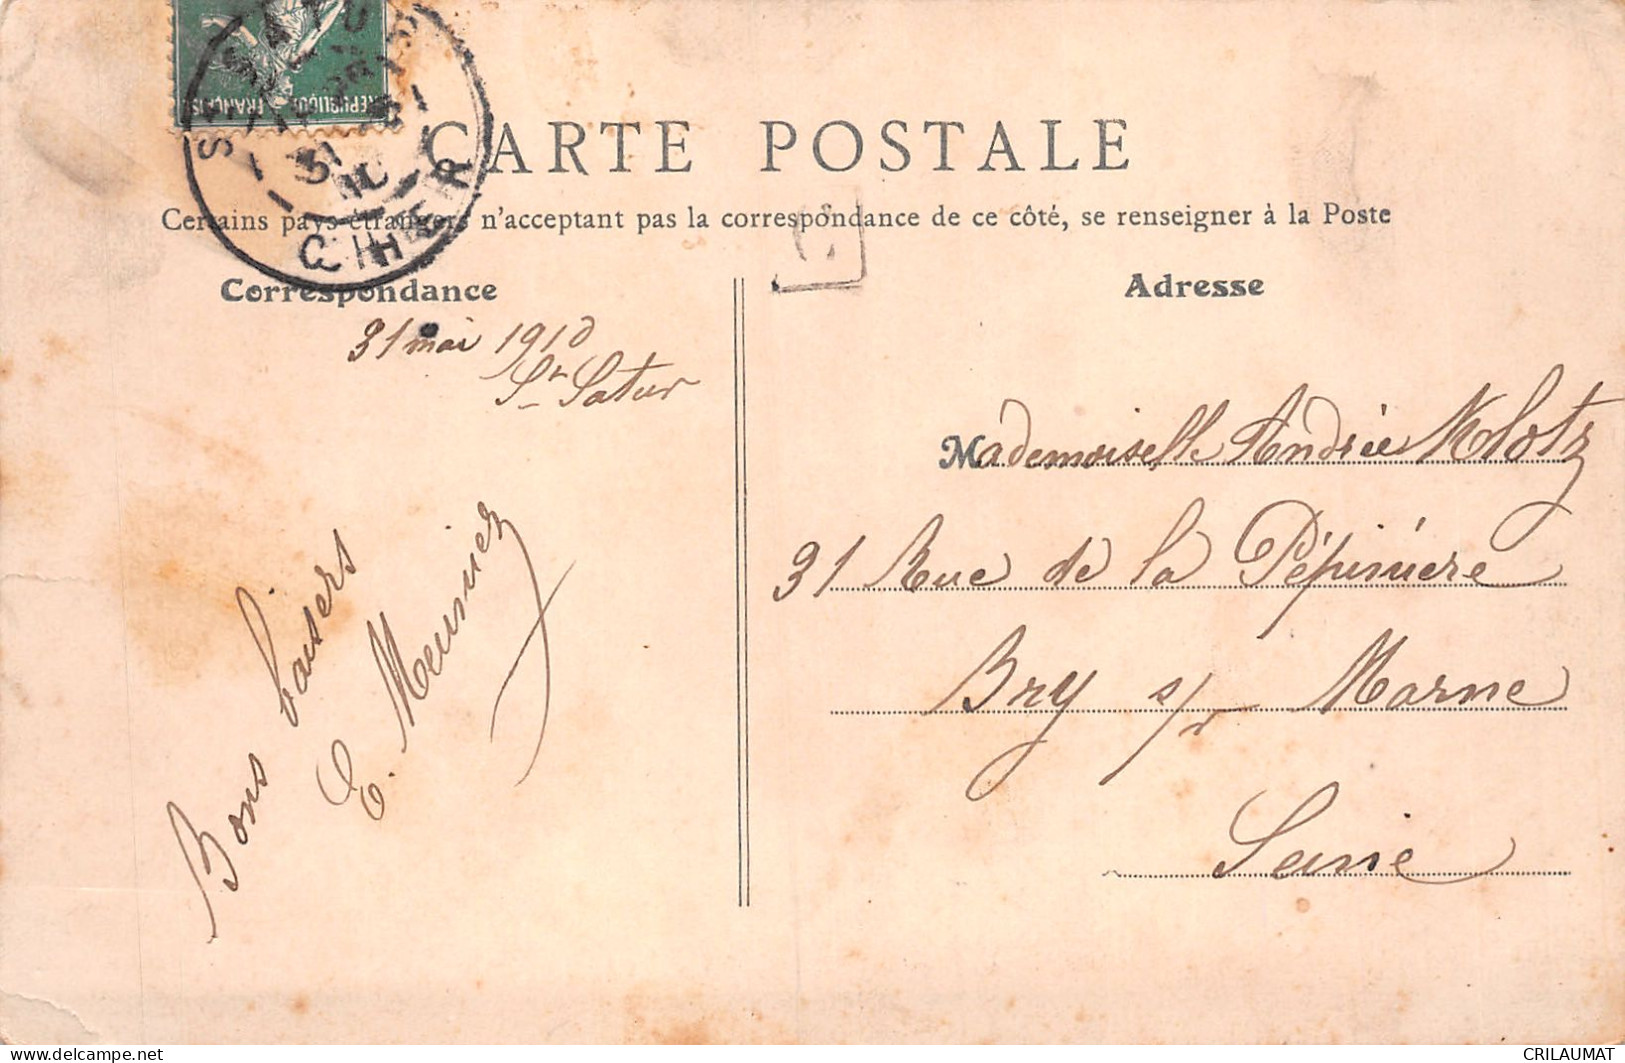 RÉPUBLIQUE FRANÇAISE
CHER
31
CARTE POSTALE
Certains pays étrangers n'acceptant pas la correspondance de ce côté, se renseigner à la Poste
Correspondance
Adresse
31 mai 1910
St Satur
Bons baisers
E. Meunier
Mademoiselle Andrée Klotz
31 Rue de la Pépinière
Bry s/r Marne
Seine
CRILAUMAT